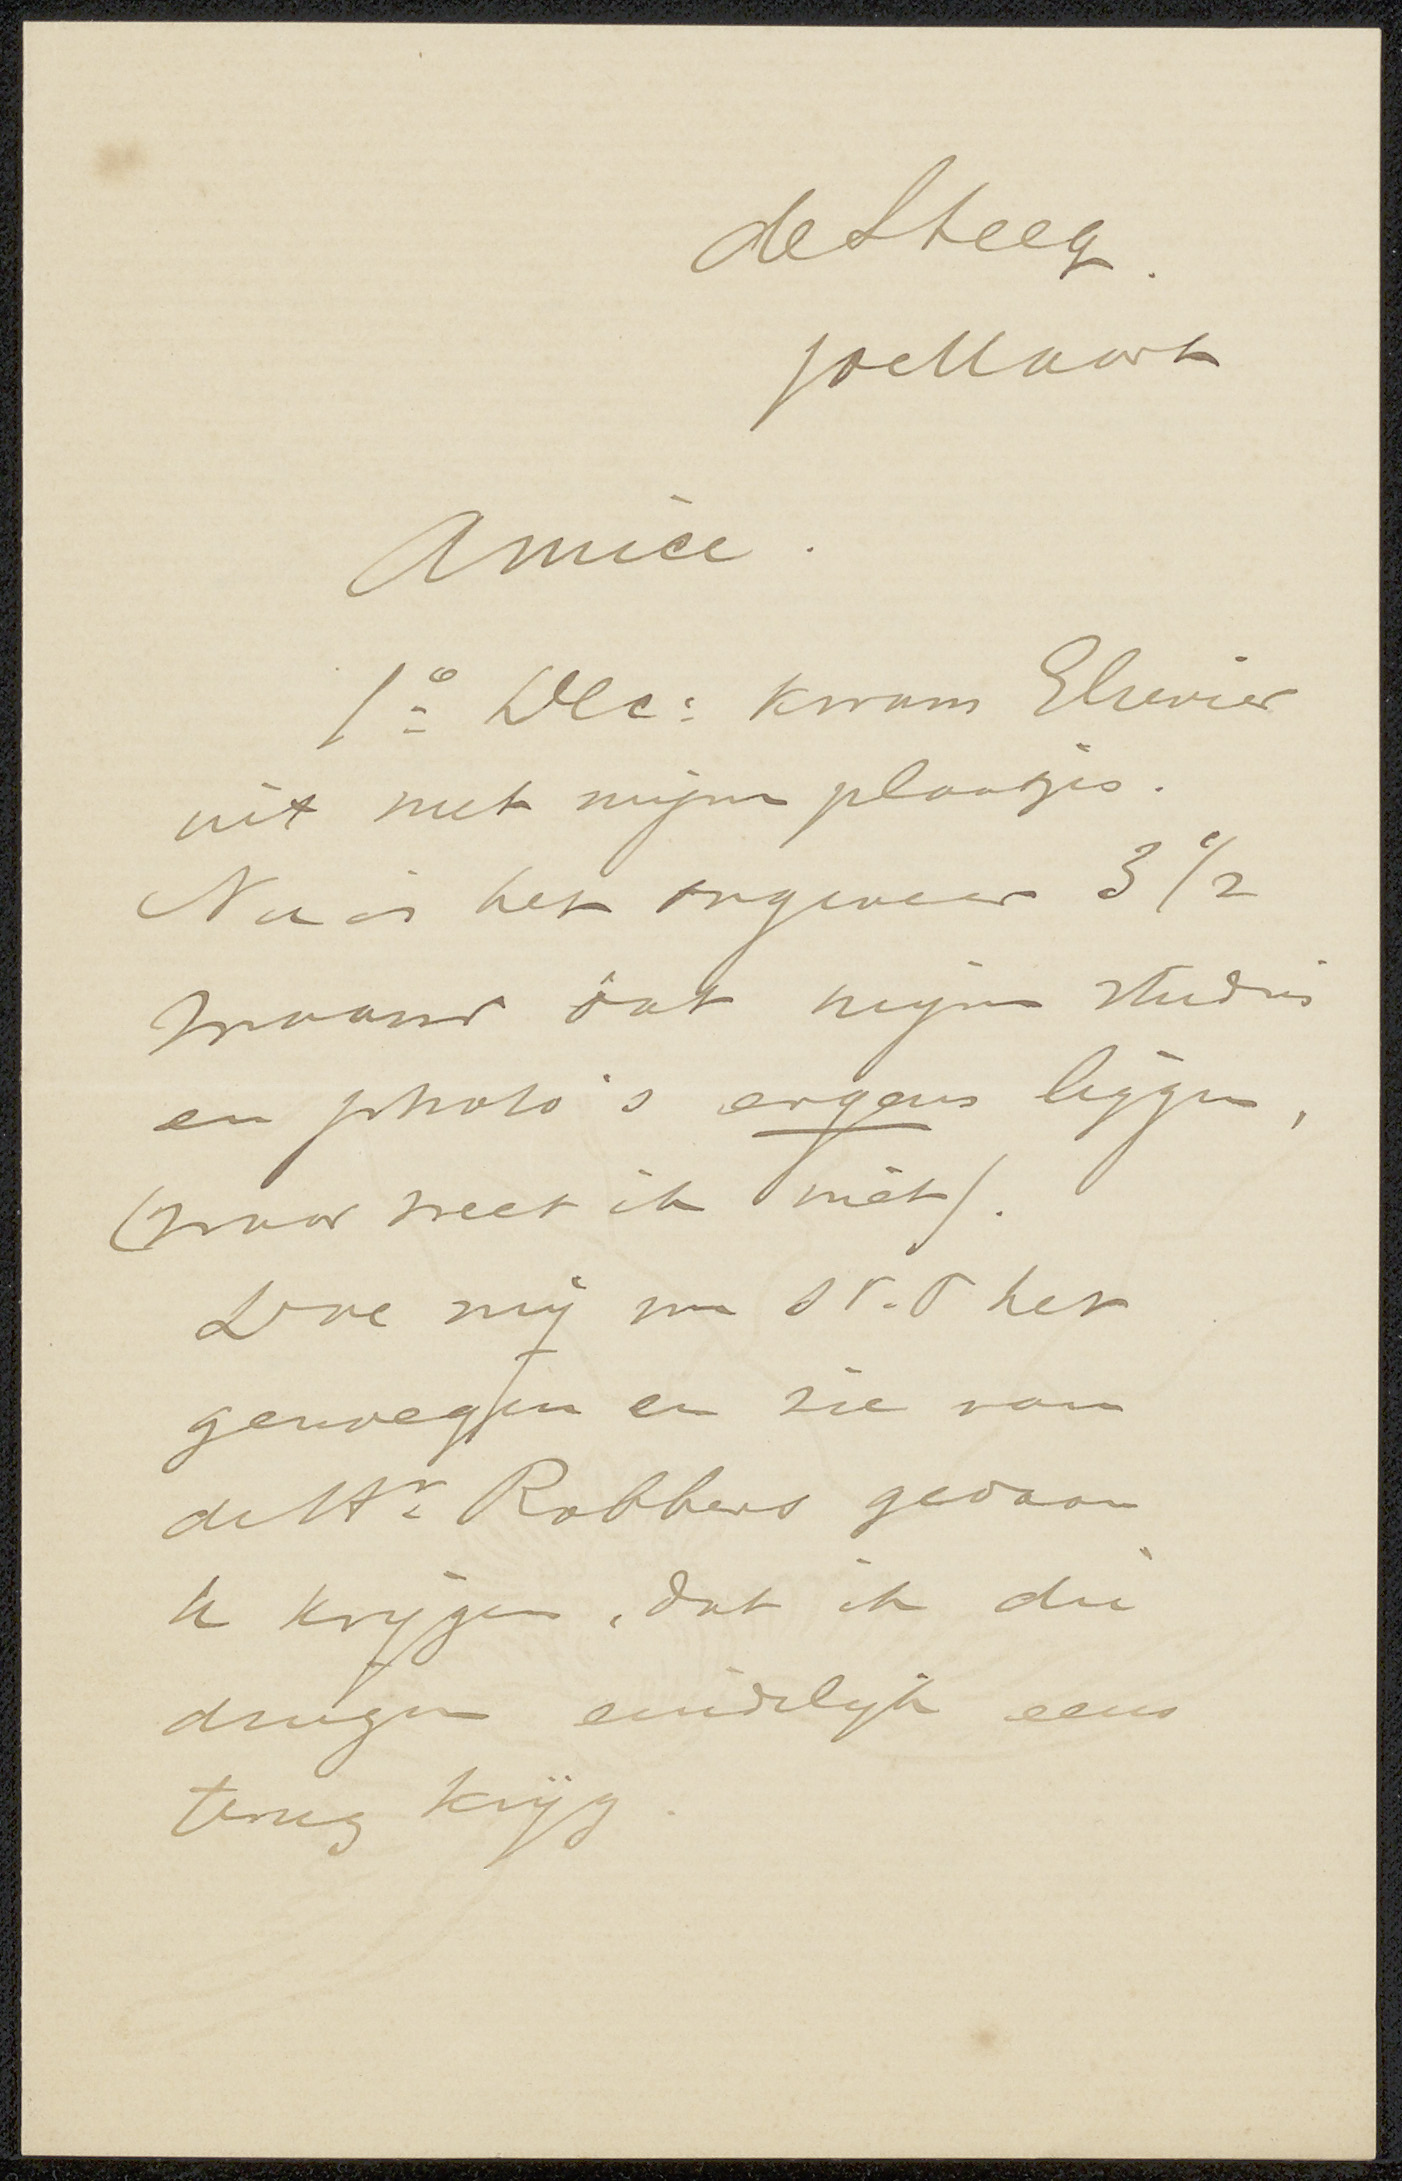 de Steeg.
10e Maart
Amice.
1º Dec: kwam Elsevier
uit met mijne plaatjes.
Nu is het ongeveer 3 1/2
maand dat mijne studies
en photo's ergens liggen,
(waar weet ik niet).
Doe mij nu s.v.p het
genoegen en zie van
de Hr Robbers gedaan
te krijgen, dat ik die
dingen eindelijk eens
terug krijg.